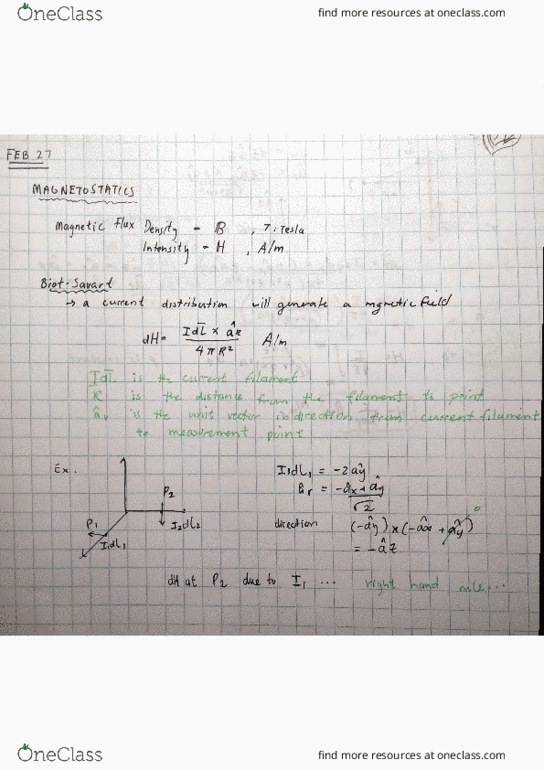 OneClass
find more resources at oneclass.com
FEB 27
MAGNETOSTATICS
Magnetic Flux Density - B , T: Tesla
Intensity - H , A/m
Biot-Savart
→ a current distribution will generate a mgnetic field
dH = IdL̄ × âR / 4πR² A/m
IdL̄ is the current filament
R is the distance from the filament to point
âr is the unit vector in direction from current filament
to measurement point
Ex.
I1dL1 = -2ây
P2
âr = -âx + ây / √2
P1
I2dL2
I1dL1
direction (-ây) × (-âx + ây) 0
= -âz
dH at P2 due to I1 ... right hand rule...
OneClass
find more resources at oneclass.com